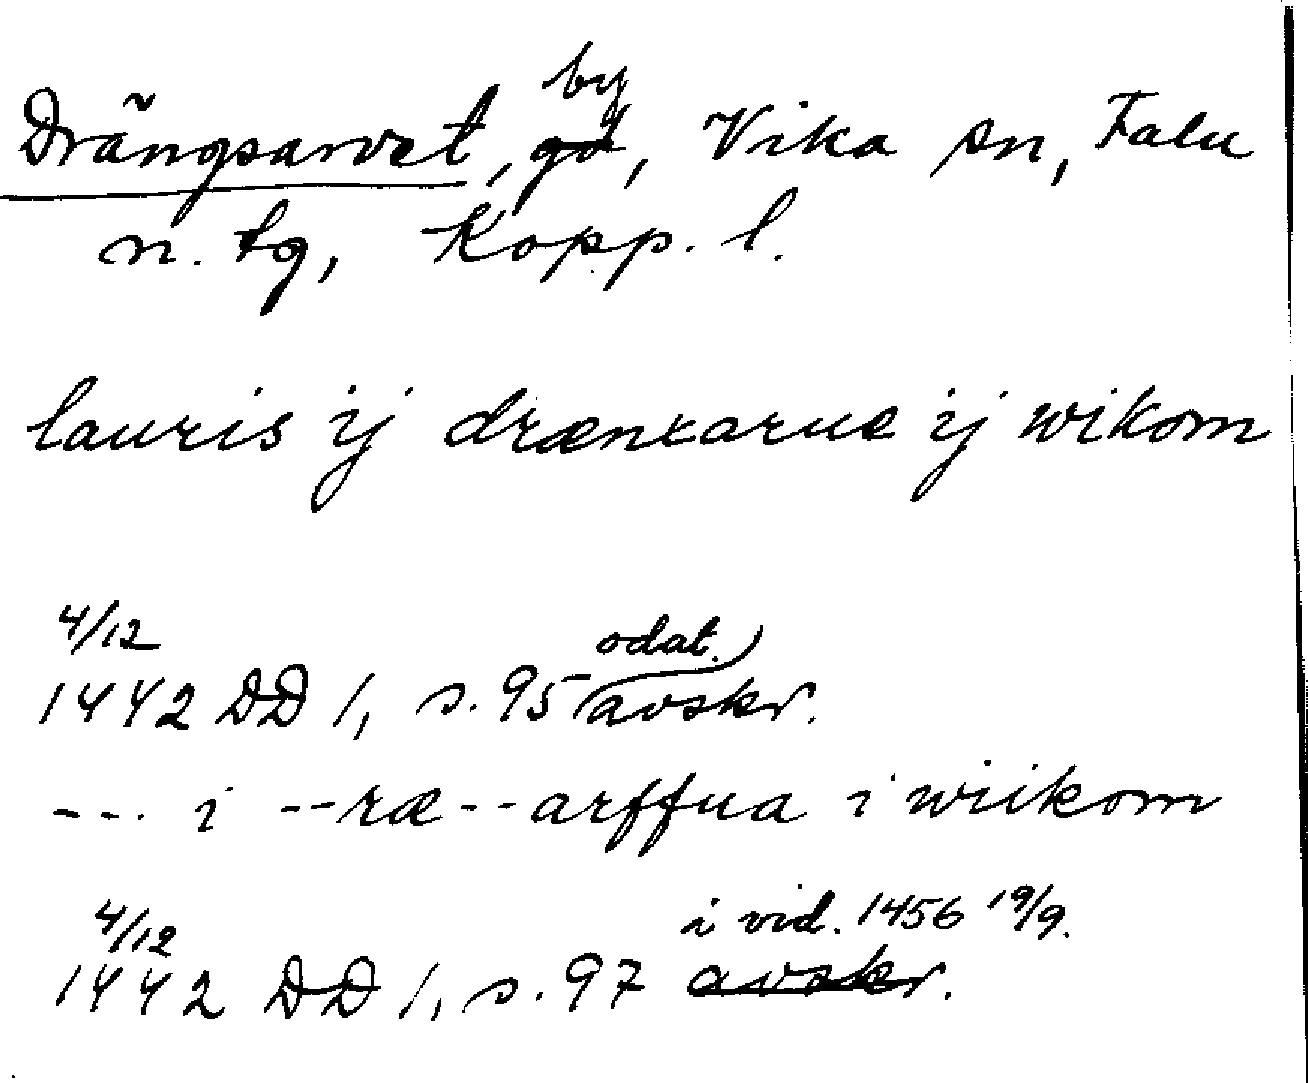 Drängsarvet, by gd, Vika sn, Falu
n. tg, Kopp. l.
lauris ij drænxarue ij wikom
4/12
1442 DD 1, s. 95 odat. avskr.
--- i --ræ--arffua i wiikom
4/12 i vid. 1456 19/9.
1442 DD 1, s. 97 avskr.